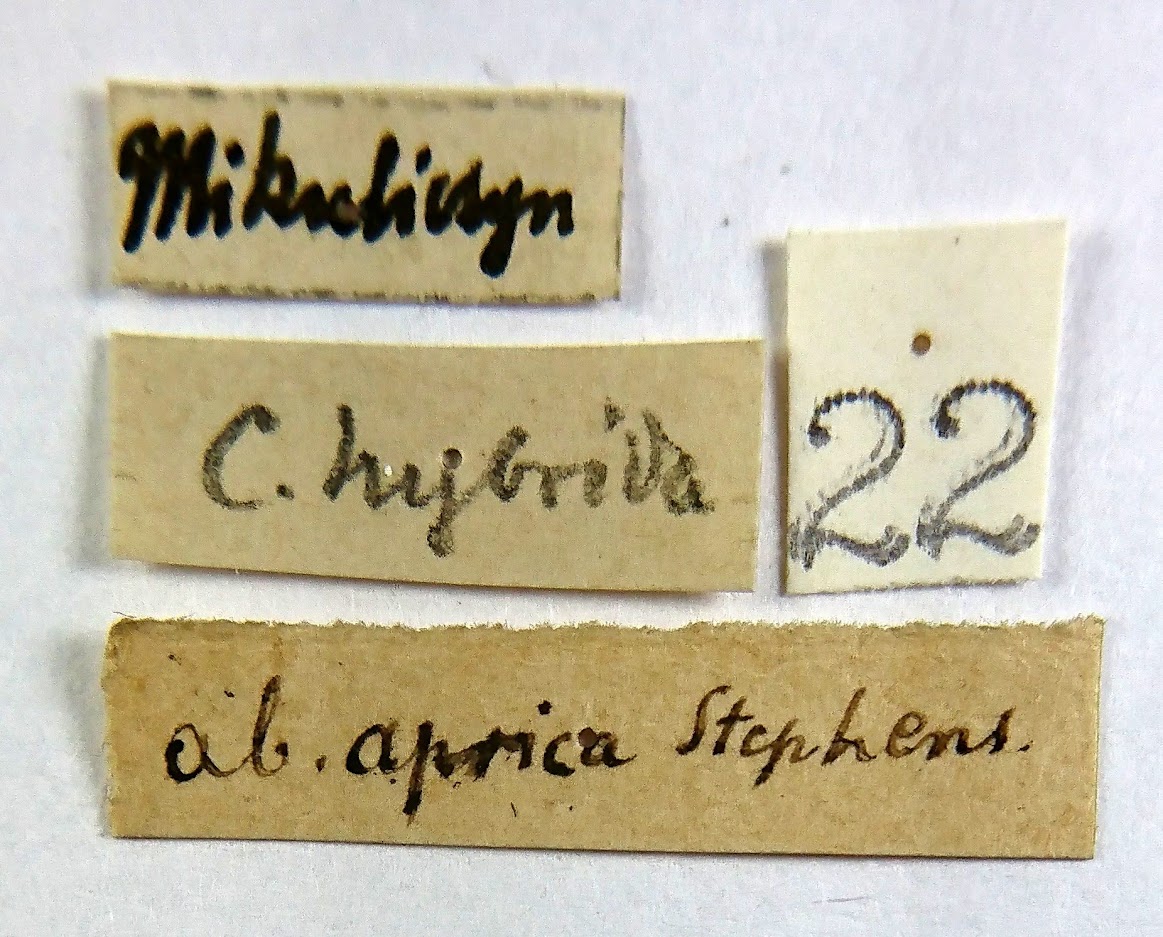 C. hybrida
22
ab. aprica Stephens.